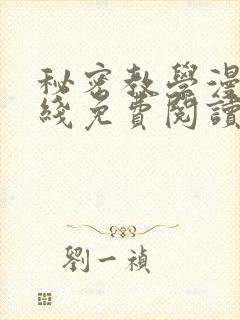 秘密教學漫
綫免費閱讀
劉一禎